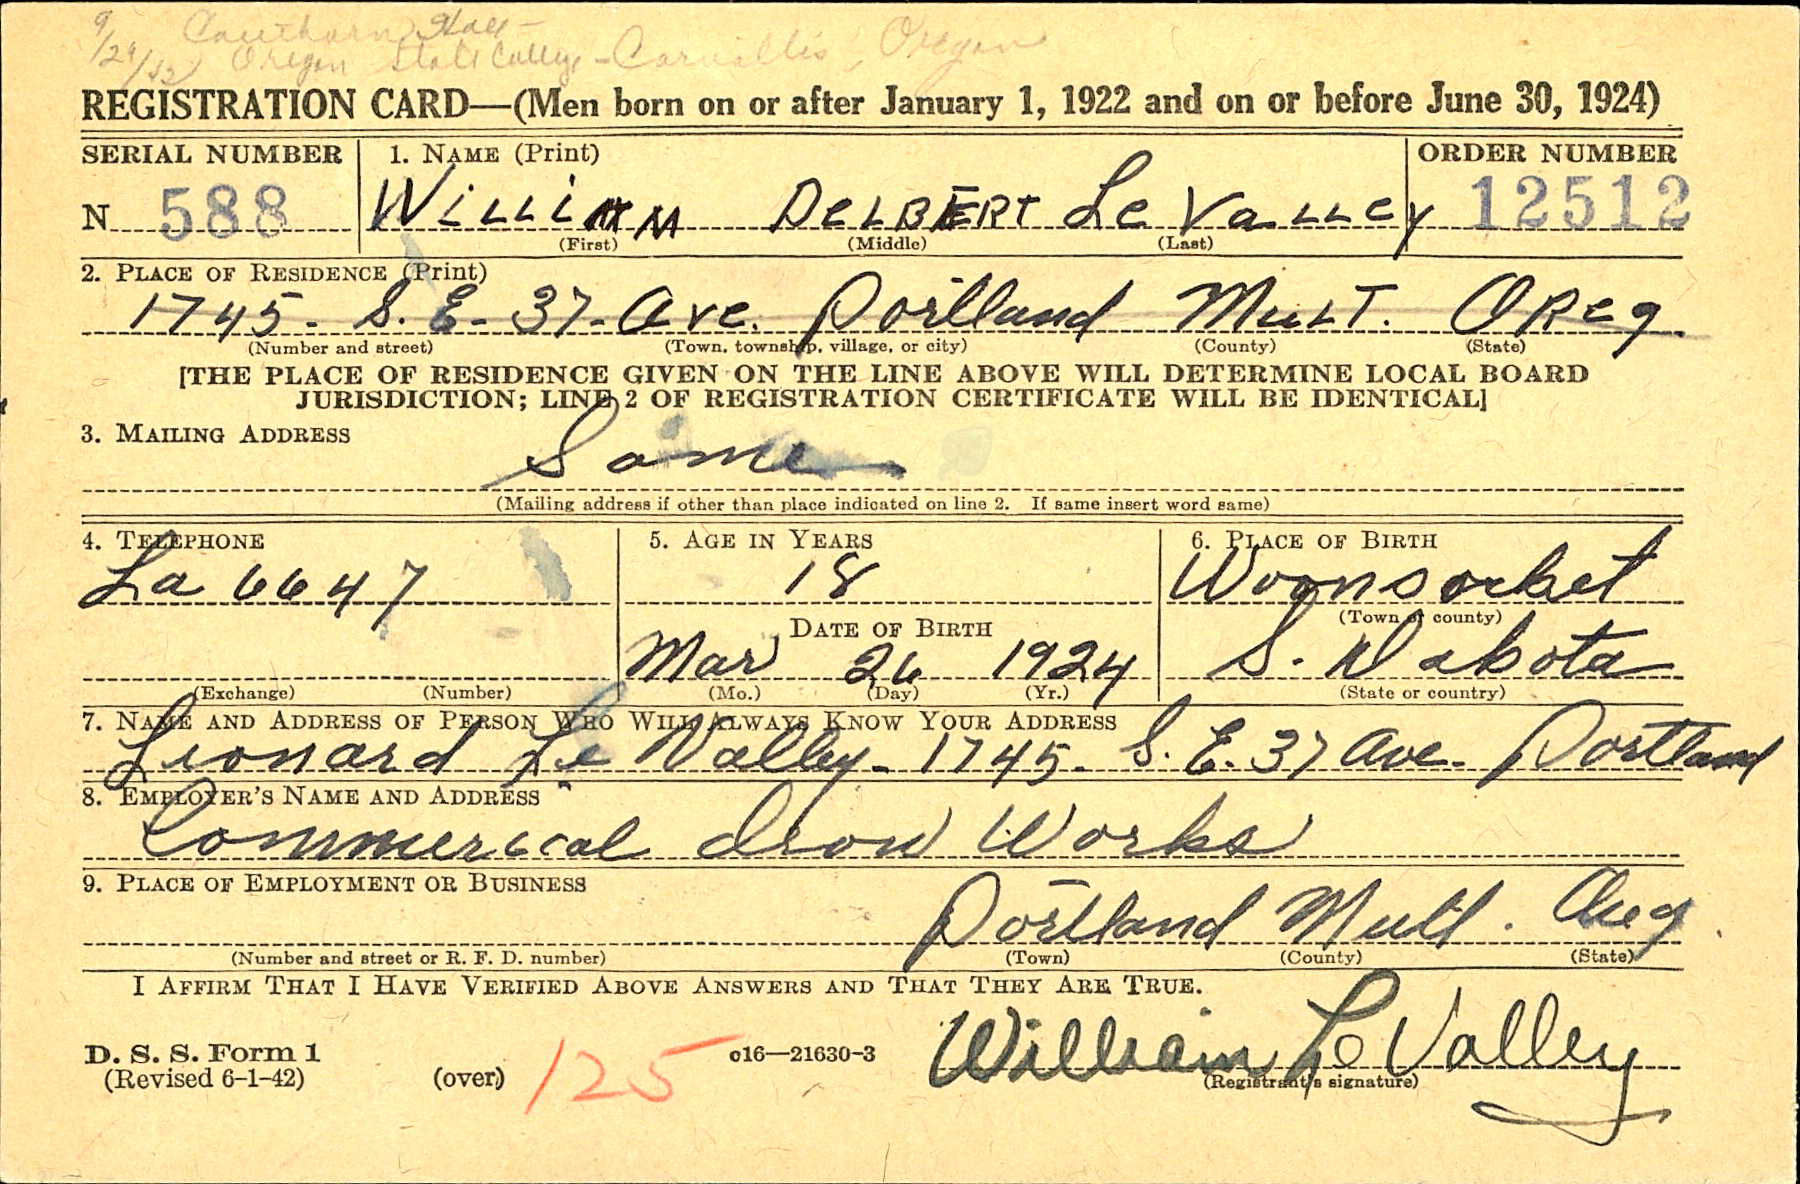 9/29/42 Cauthorn Hall-
Oregon State College - Corvallis, Oregon
REGISTRATION CARD—(Men born on or after January 1, 1922 and on or before June 30, 1924)
SERIAL NUMBER 1. NAME (Print) ORDER NUMBER
N 588 WILLIAM DELBERT Le VaLLey 12512
(First) (Middle) (Last)
2. PLACE OF RESIDENCE (Print)
1745 - S. E. - 37 - Ave. Portland MULT. OReg.
(Number and street) (Town, township, village, or city) (County) (State)
[THE PLACE OF RESIDENCE GIVEN ON THE LINE ABOVE WILL DETERMINE LOCAL BOARD
JURISDICTION; LINE 2 OF REGISTRATION CERTIFICATE WILL BE IDENTICAL]
3. MAILING ADDRESS
Same
(Mailing address if other than place indicated on line 2. If same insert word same)
4. TELEPHONE 5. AGE IN YEARS 6. PLACE OF BIRTH
La 6647 18 Woonsocket
(Town or county)
DATE OF BIRTH
Mar 26 1924 S. Dakota
(Exchange) (Number) (Mo.) (Day) (Yr.) (State or country)
7. NAME AND ADDRESS OF PERSON WHO WILL ALWAYS KNOW YOUR ADDRESS
Leonard Le Valley - 1745 - S. E. 37 Ave - Portland
8. EMPLOYER'S NAME AND ADDRESS
Commerical Iron Works
9. PLACE OF EMPLOYMENT OR BUSINESS
Portland Mult. Oreg.
(Number and street or R. F. D. number) (Town) (County) (State)
I AFFIRM THAT I HAVE VERIFIED ABOVE ANSWERS AND THAT THEY ARE TRUE.
D. S. S. Form 1
(Revised 6-1-42) (over) 125 c16—21630-3 William Le Valley
(Registrant's signature)